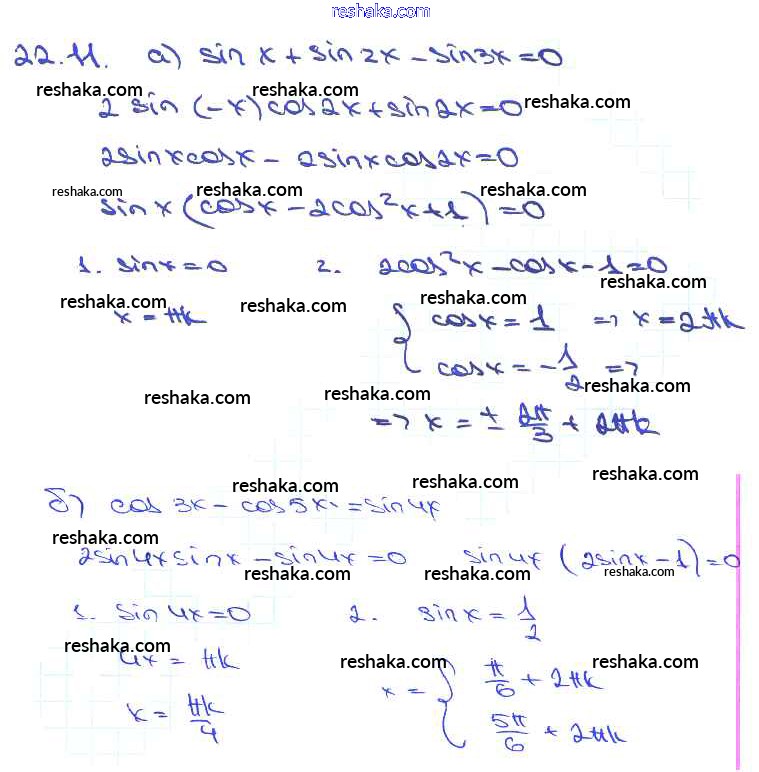 reshaka.com
22.11. а) sin x + sin 2x - sin 3x = 0
reshaka.com reshaka.com reshaka.com
2 sin (-x) cos 2x + sin 2x = 0
2 sin x cos x - 2 sin x cos 2x = 0
reshaka.com reshaka.com reshaka.com
sin x (cos x - 2cos²x + 1) = 0
1. sin x = 0 2. 2cos²x - cos x - 1 = 0
reshaka.com reshaka.com reshaka.com reshaka.com
x = πk { cos x = 1 => x = 2πk
cos x = -1/2 =>
reshaka.com reshaka.com reshaka.com
=> x = ± 2π/3 + 2πk
reshaka.com reshaka.com reshaka.com
б) cos 3x - cos 5x = sin 4x
reshaka.com reshaka.com reshaka.com
2 sin 4x sin x - sin 4x = 0 sin 4x (2 sin x - 1) = 0
reshaka.com reshaka.com reshaka.com
1. sin 4x = 0 2. sin x = 1/2
reshaka.com reshaka.com reshaka.com
4x = πk x = { π/6 + 2πk
x = πk/4 5π/6 + 2πk